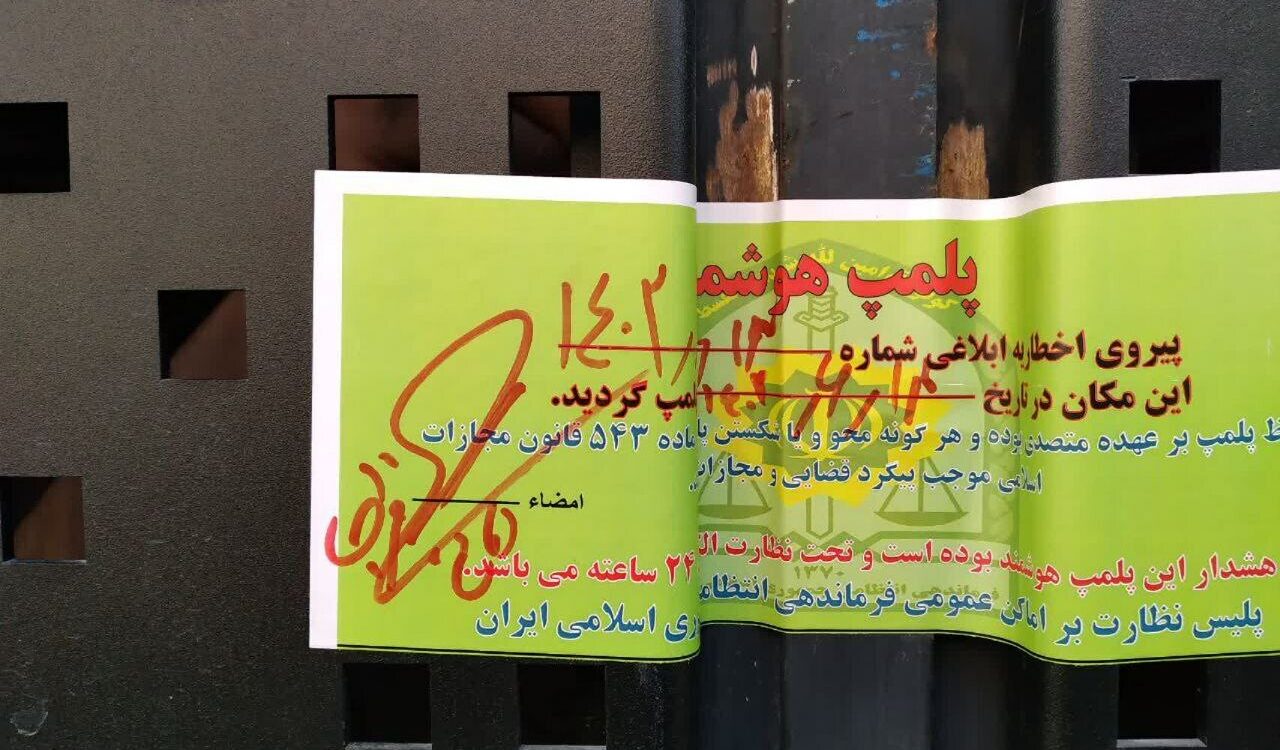 پلمپ هوشم
پیروی اخطاریه ابلاغی شماره
این مکان در تاریخ لمپ گردید.
ظ پلمپ بر عهده متصدی بوده و هر گونه محو و یا شکستن پل ماده ۵۴۳ قانون مجازات
اسلامی موجب پیگرد قضایی و مجازات
امضاء
هشدار این پلمپ هوشمند بوده است و تحت نظارت الک ۲۴ ساعته می باشد.
پلیس نظارت بر اماکن عمومی فرماندهی انتظامی ری اسلامی ایران
۱۳۷۰